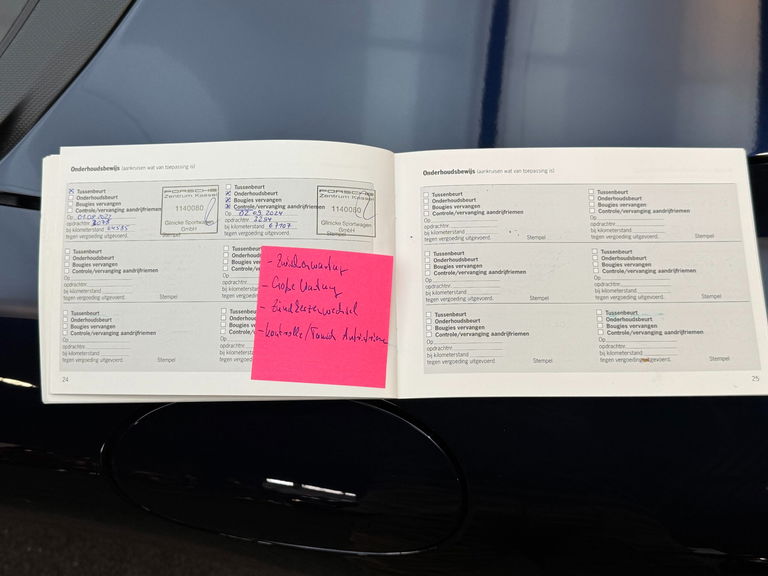 Onderhoudsbewijs (aankruisen wat van toepassing is)
Tussenbeurt
Onderhoudsbeurt
Bougies vervangen
Controle/vervanging aandrijfriemen
Op
opdrachtnr.
bij kilometerstand
tegen vergoeding uitgevoerd.
Stempel
PORSCHE
Zentrum Kassel
1140080
Glinicke Sportwagen
GmbH
Tussenbeurt
Onderhoudsbeurt
Bougies vervangen
Controle/vervanging aandrijfriemen
Op 02.09.2024
opdrachtnr.
bij kilometerstand 67907
tegen vergoeding uitgevoerd.
Stempel
PORSCHE
Zentrum Kassel
1140080
Glinicke Sportwagen
GmbH
Tussenbeurt
Onderhoudsbeurt
Bougies vervangen
Controle/vervanging aandrijfriemen
Op
opdrachtnr.
bij kilometerstand
tegen vergoeding uitgevoerd.
Stempel
Onderhoudsb
Bougies ve
Controle/v
Op
opdrachtnr.
bij kilometers
tegen vergoed
- Zwischenwartung
- Große Wartung
- Zündkerzenwechsel
- Kontrolle/Tausch Antriebsriemen
Tussenbeurt
Onderhoudsbeurt
Bougies vervangen
Controle/vervanging aandrijfriemen
Op
opdrachtnr.
bij kilometerstand
tegen vergoeding uitgevoerd.
Stempel
Tussenbeu
Onderhoud
Bougies v
Controle/
Op
opdrachtnr.
bij kilometer
tegen vergoe
24
Onderhoudsbewijs (aankruisen wat van toepassing is)
Tussenbeurt
Onderhoudsbeurt
Bougies vervangen
Controle/vervanging aandrijfriemen
Op
opdrachtnr.
bij kilometerstand
tegen vergoeding uitgevoerd.
Stempel
Tussenbeurt
Onderhoudsbeurt
Bougies vervangen
Controle/vervanging aandrijfriemen
Op
opdrachtnr.
bij kilometerstand
tegen vergoeding uitgevoerd.
Stempel
Tussenbeurt
Onderhoudsbeurt
Bougies vervangen
Controle/vervanging aandrijfriemen
Op
opdrachtnr.
bij kilometerstand
tegen vergoeding uitgevoerd.
Stempel
Tussenbeurt
Onderhoudsbeurt
Bougies vervangen
Controle/vervanging aandrijfriemen
Op
opdrachtnr.
bij kilometerstand
tegen vergoeding uitgevoerd.
Stempel
Tussenbeurt
Onderhoudsbeurt
Bougies vervangen
Controle/vervanging aandrijfriemen
Op
opdrachtnr.
bij kilometerstand
tegen vergoeding uitgevoerd.
Stempel
Tussenbeurt
Onderhoudsbeurt
Bougies vervangen
Controle/vervanging aandrijfriemen
Op
opdrachtnr.
bij kilometerstand
tegen vergoeding uitgevoerd.
Stempel
25